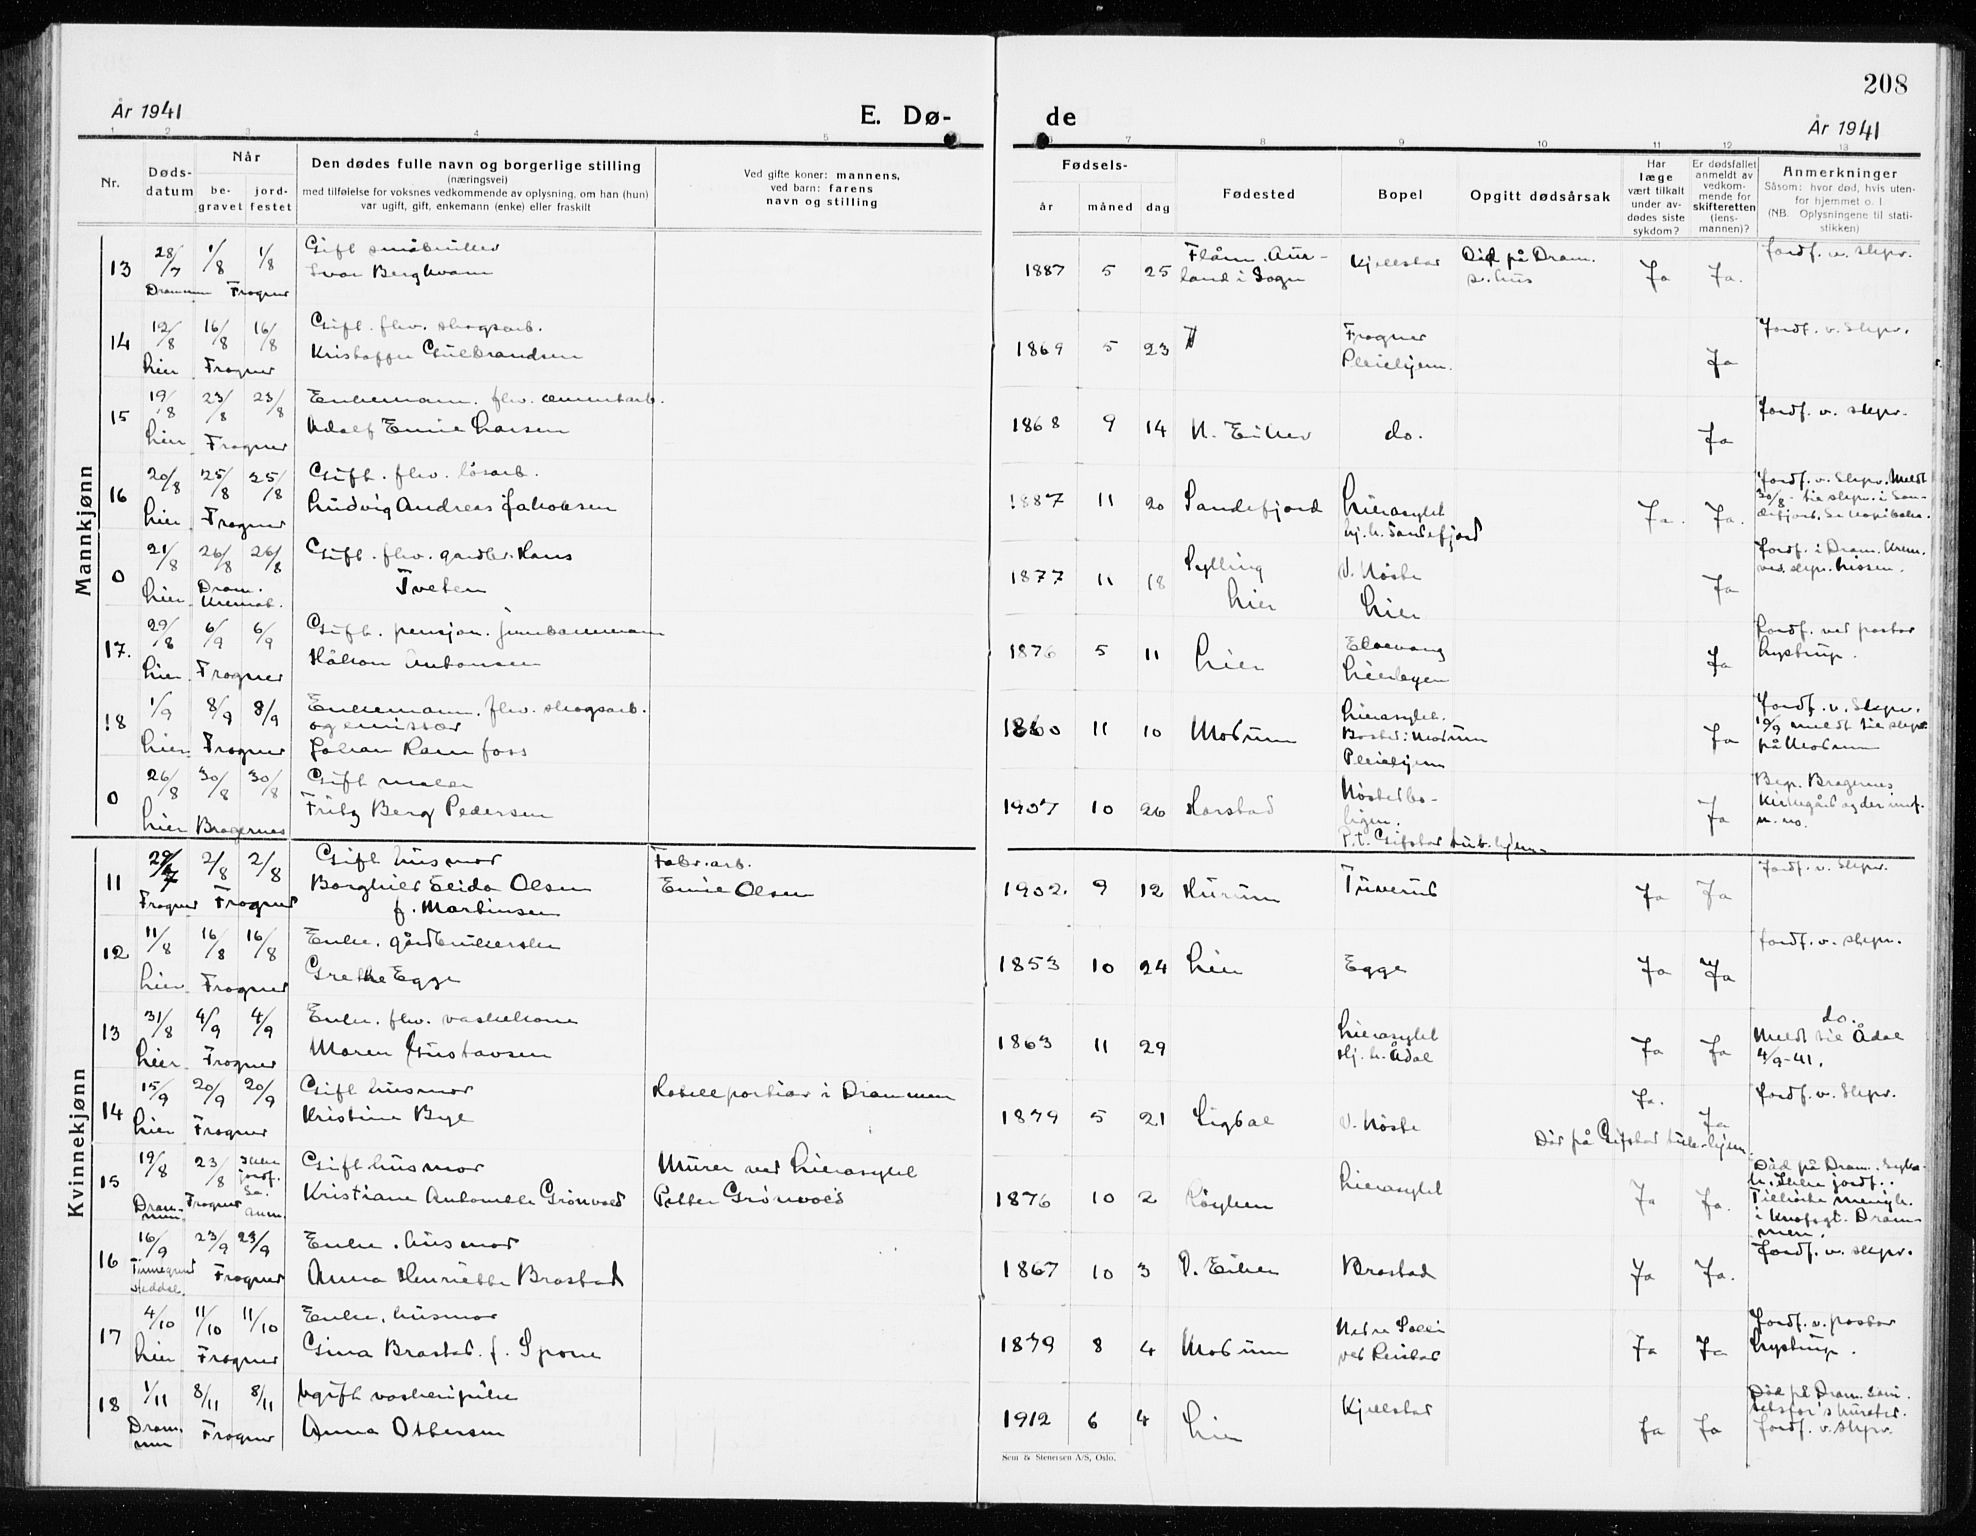 208
År 1941
E. Dø-
de
År 1941
1 2 3 4 5 6 7 8 9 10 11 12 13
Nr.
Døds-
datum
Når
be-
gravet
jord-
festet
Den dødes fulle navn og borgerlige stilling
(næringsvei)
med tilføielse for voksnes vedkommende av oplysning, om han (hun)
var ugift, gift, enkemann (enke) eller fraskilt
Ved gifte koner: mannens,
ved barn: farens
navn og stilling
Fødsels-
år måned dag
Fødested
Bopel
Opgitt dødsårsak
Har
læge
vært tilkalt
under av-
dødes siste
sykdom?
Er dødsfallet
anmeldt av
vedkom-
mende for
skifteretten
(lens-
mannen)?
Anmerkninger
Såsom: hvor død, hvis uten-
for hjemmet o. l
(NB. Oplysningene til stati-
stikken)
Mannkjønn
13 28/7 1/8 1/8 Gift småbruker
Ivar Berghvam
Drammen Frogner
1887 5 25 Flåm. Aur-
land i Sogn Kjellstad Död på Dram.
s.hus Ja Ja. Jordf. v. skpr.
14 12/8 16/8 16/8 Gift. fhv. skogsarb.
Kristoffer Gulbrandsen
Lier Frogner
1869 5 23 Frogner
Pleiehjem. Ja Jordf. v. Skpr.
15 19/8 23/8 23/8 Enkemann. fhv. cementarb.
Adolf Emil Larsen
Lier Frogner
1868 9 14 N. Eiker do. Ja Jordf. v. skpr.
16 20/8 25/8 25/8 Gift. fhv. løsarb.
Ludvig Andreas Jakobsen
Lier Frogner
1887 11 20 Sandefjord Lierasylet
hj.h. Sandefjord Ja. Ja. Jordf. v. Skpr. Meldt
30/8 til skpr. i San-
defjord.
0 21/8 26/8 26/8 Gift. fhv. gardbr. Hans
Tveten
Lier Dram.
Kremat.
1877 11 18 Sylling
Lier V. Nöste
Lier Ja Jordf. i Dram. Krem.
ved skpr.
17. 29/8 6/9 6/9 Gift. pensjon. jernbanemann
Håkon Antonsen
Lier Frogner
1876 5 11 Lier
Lierbyen Ja Jordf. ved pastor
Lystrup.
18 1/9 8/9 8/9 Enkemann. fhv. skogsarb.
og emissær
Johan Ramfoss
Lier Frogner
1860 11 10 Modum Lierasylet.
Bosted: Modum
Pleiehjem Ja Jordf. v. Skpr.
10/9 meldt til skpr
på Modum
0 26/8 30/8 30/8 Gift maler
Fritz Berg Pedersen
Lier Bragernes
1907 10 26 Harstad Nöstedbo-
ligen.
P.t. Gifstad tub.hjem. Ja Begr. Bragernes
Kirkegård og der innf.
m. no.
Kvinnekjønn
11 29/7 2/8 2/8 Gift husmor
Borghild Elida Olsen
f. Martinsen
Frogner Frogner
Fabr.arb.
Emil Olsen
1902. 9 12 Hurum Tuverud Ja Ja Jordf. v. Skpr.
12 11/8 16/8 16/8 Enke. gårdbrukerske
Grethe Egge
Lier Frogner
1853 10 24 Lier Egge Ja Ja Jordf. v. skpr.
13 31/8 4/9 4/9 Enke. fhv. vaskekone
Maren Gustavsen
Lier Frogner
1863 11 29 Lierasylet
Hj. h. Ådal Ja Ja do.
Meldt til Ådal
4/9-41.
14 15/9 20/9 20/9 Gift husmor
Kristine Bye
Lier Frogner
Hotellportier i Drammen
1879 5 21 Sigdal V. Nöste Död på Gifstad tub.hjem. Ja. Ja Jordf. v. Skpr.
15 19/8 23/8 Ikke
jordf.
Se
anm.
Gift husmor
Kristiane Antonette Grönvold
Drammen. Frogner
Murer ved Lierasylet
Petter Grönvold
1876 10 2 Röyken Lierasylet Ja Ja. Död på Dram. Syke-
h. Ikke jordf.
Tilhörte menigh.
i Knofsgt. Dram-
men.
16 16/9 23/9 23/9 Enke. husmor
Anna Henriette Brastad
Tinnegrend
Heddal. Frogner
1867 10 3 Ö. Eiker Brastad Ja Ja. Jordf. v. skpr.
17 4/10 11/10 11/10 Enke, husmor
Gina Brastad. f. Spone
Lier Frogner
1879 8 4 Modum Nedre Solli
ved Reistad Ja Ja Jordf. v. pastor
Lystrup.
18 1/11 8/11 8/11 Ugift vaskeripike
Anna Ottersen
Drammen Frogner
1912 6 4 Lier Kjellstad Ja Ja Död på Dram. Sani-
tetsfor's Kursted.
Jordf. v. skpr.
Sem & Stenersen A/S, Oslo.